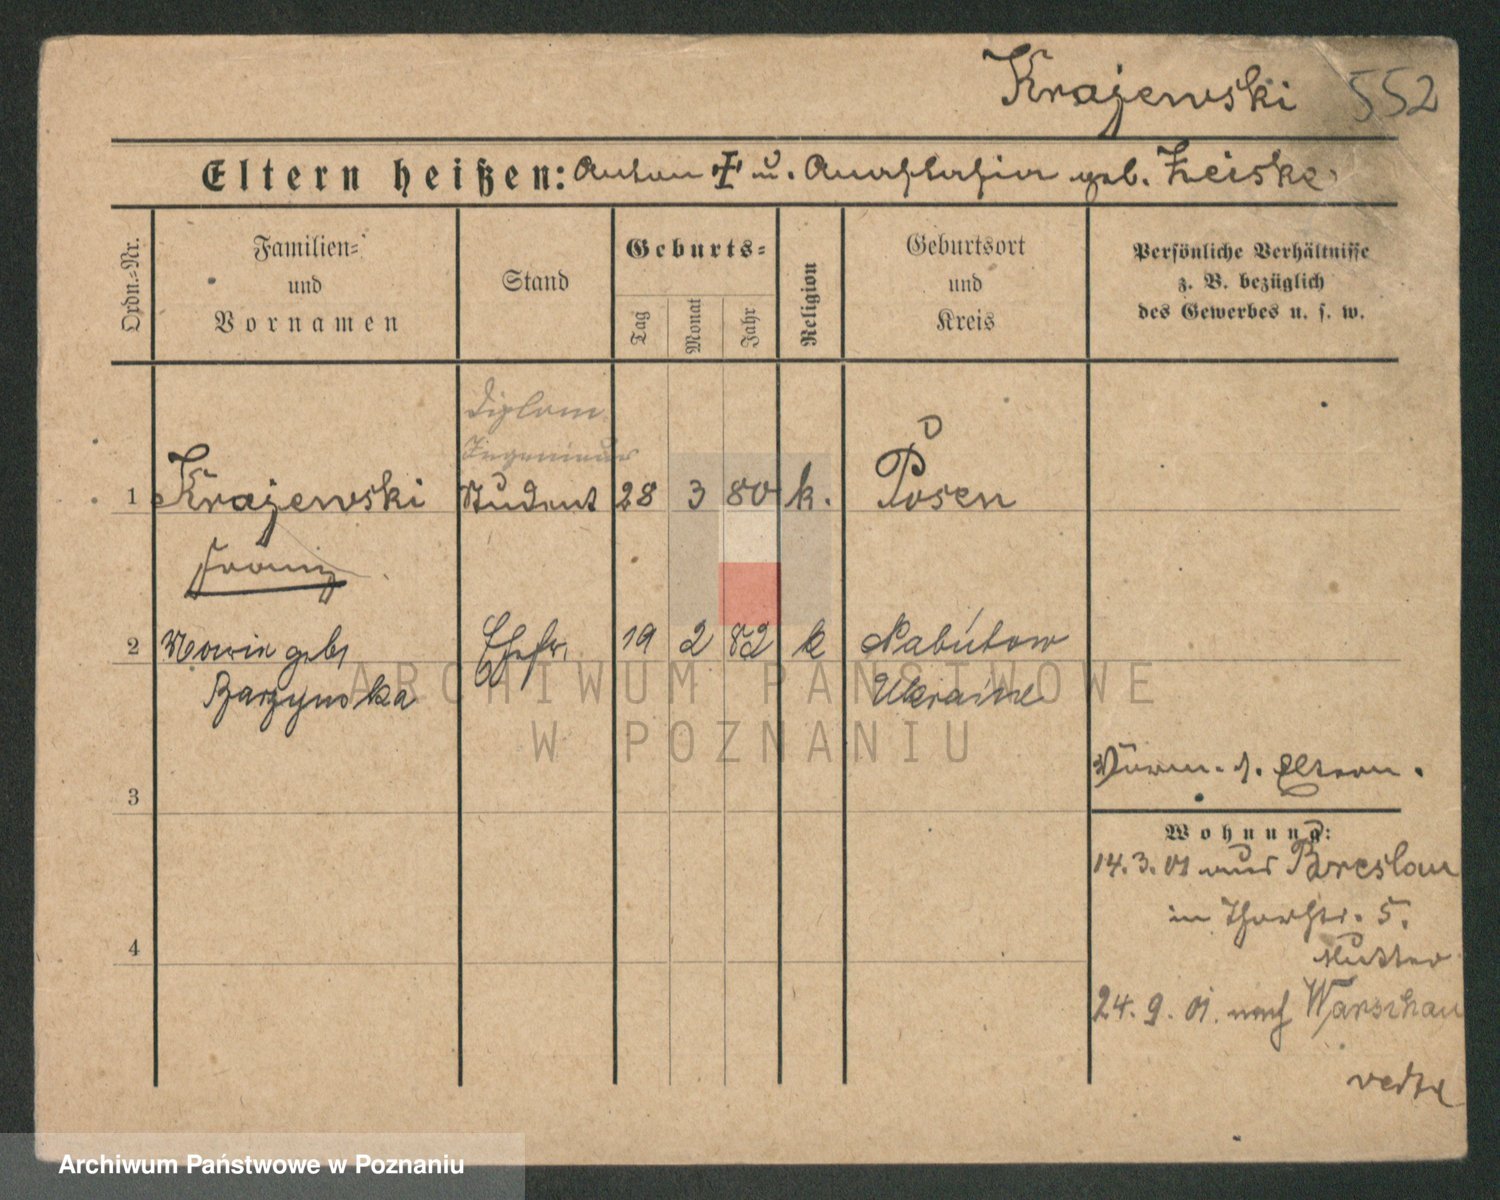 Krajewski 552
Eltern heißen: Anton † u. Anastasia geb. Zeiske.
Ordn.-Nr.
Familien-
und
Vornamen
Stand
Geburts-
Tag
Monat
Jahr
Religion
Geburtsort
und
Kreis
Persönliche Verhältnisse
z. B. bezüglich
des Gewerbes u. s. w.
Diplom
Ingenieur
1 Krajewski Student 28 3 80 k. Posen
Franz
2 Maria geb. Ehefr. 19 2 82 k Nabutow
Barzynska Ukraine
ARCHIWUM PAŃSTWOWE
W POZNANIU
3
Eltern.
Wohnung:
14.3.01 aus Breslau
4
in Thorstr. 5.
Mutter
24.9.01. nach Warschau
verte
Archiwum Państwowe w Poznaniu